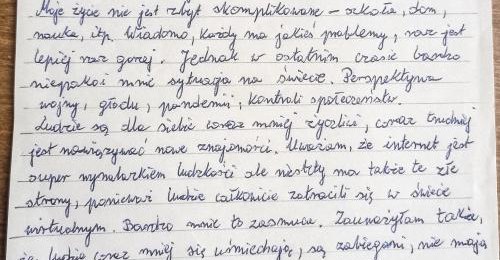 Moje życie nie jest zbyt skomplikowane - szkoła, dom,
nauka, itp. Wiadomo, każdy ma jakieś problemy, raz jest
lepiej raz gorzej. Jednak w ostatnim czasie bardzo
niepokoi mnie sytuacja na świecie. Perspektywa
wojny, głodu, pandemii, kontroli społeczeństw.
Ludzie są dla siebie coraz mniej życzliwi, coraz trudniej
jest nawiązywać nowe znajomości. Uważam, że internet jest
super wynalazkiem ludzkości ale niestety ma także te złe
strony, ponieważ ludzie całkowicie zatracili się w świecie
wirtualnym. Bardzo mnie to zasmuca. Zauważyłam także,
że ludzie coraz mniej się uśmiechają, są zabiegani, nie mają